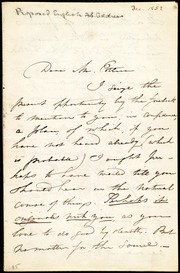 Proposed English A.S. Address
Dec. 1862
Dear Mr. Estlin
I seize the
present opportunity by the
to mention to you, in confidence,
a plan of which, if you have
not heard already (which
is probable) I ought per-
haps to have waited till you
should hear in the natural
course of things. Perhaps to
with you as you
love to do good by stealth. But
no matter for the source —